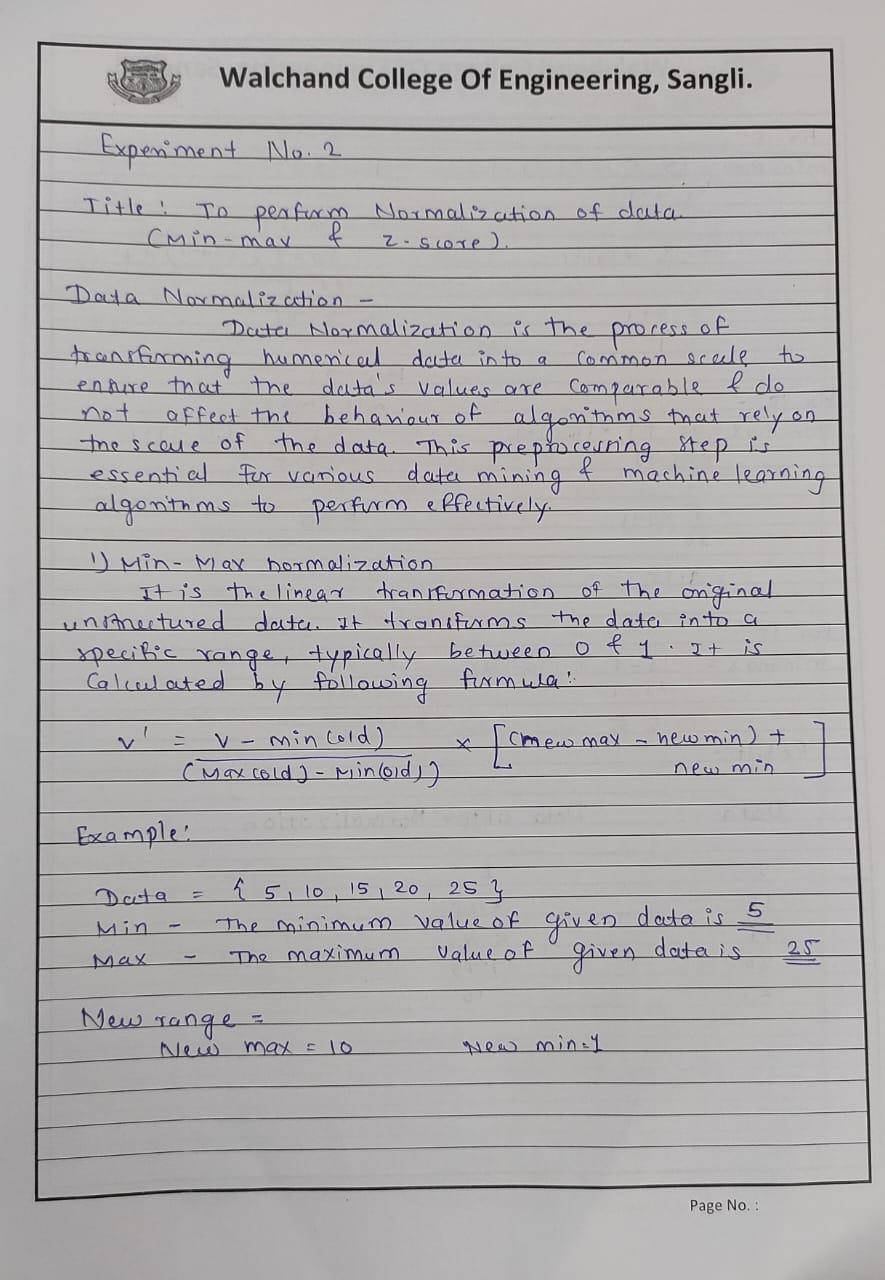 Walchand College Of Engineering, Sangli.
Experiment No. 2
Title : To perform Normalization of data
(Min-max & z-score).
Data Normalization -
Data Normalization is the process of
transforming numerical data into a common scale to
ensure that the data's values are comparable & do
not affect the behaviour of algorithms that rely on
the scale of the data. This preprocessing step is
essential for various data mining & machine learning
algorithms to perform effectively.
1) Min-Max normalization
It is the linear transformation of the original
unstructured data. It transforms the data into a
specific range, typically between 0 & 1. It is
Calculated by following formula:
v' = v - min(old) × [(new max - new min) +
(Max(old) - Min(old)) new min]
Example:
Data = { 5, 10, 15, 20, 25 }
Min - The minimum value of given data is 5
Max - The maximum value of given data is 25
New range =
New max = 10 New min=1
Page No. :